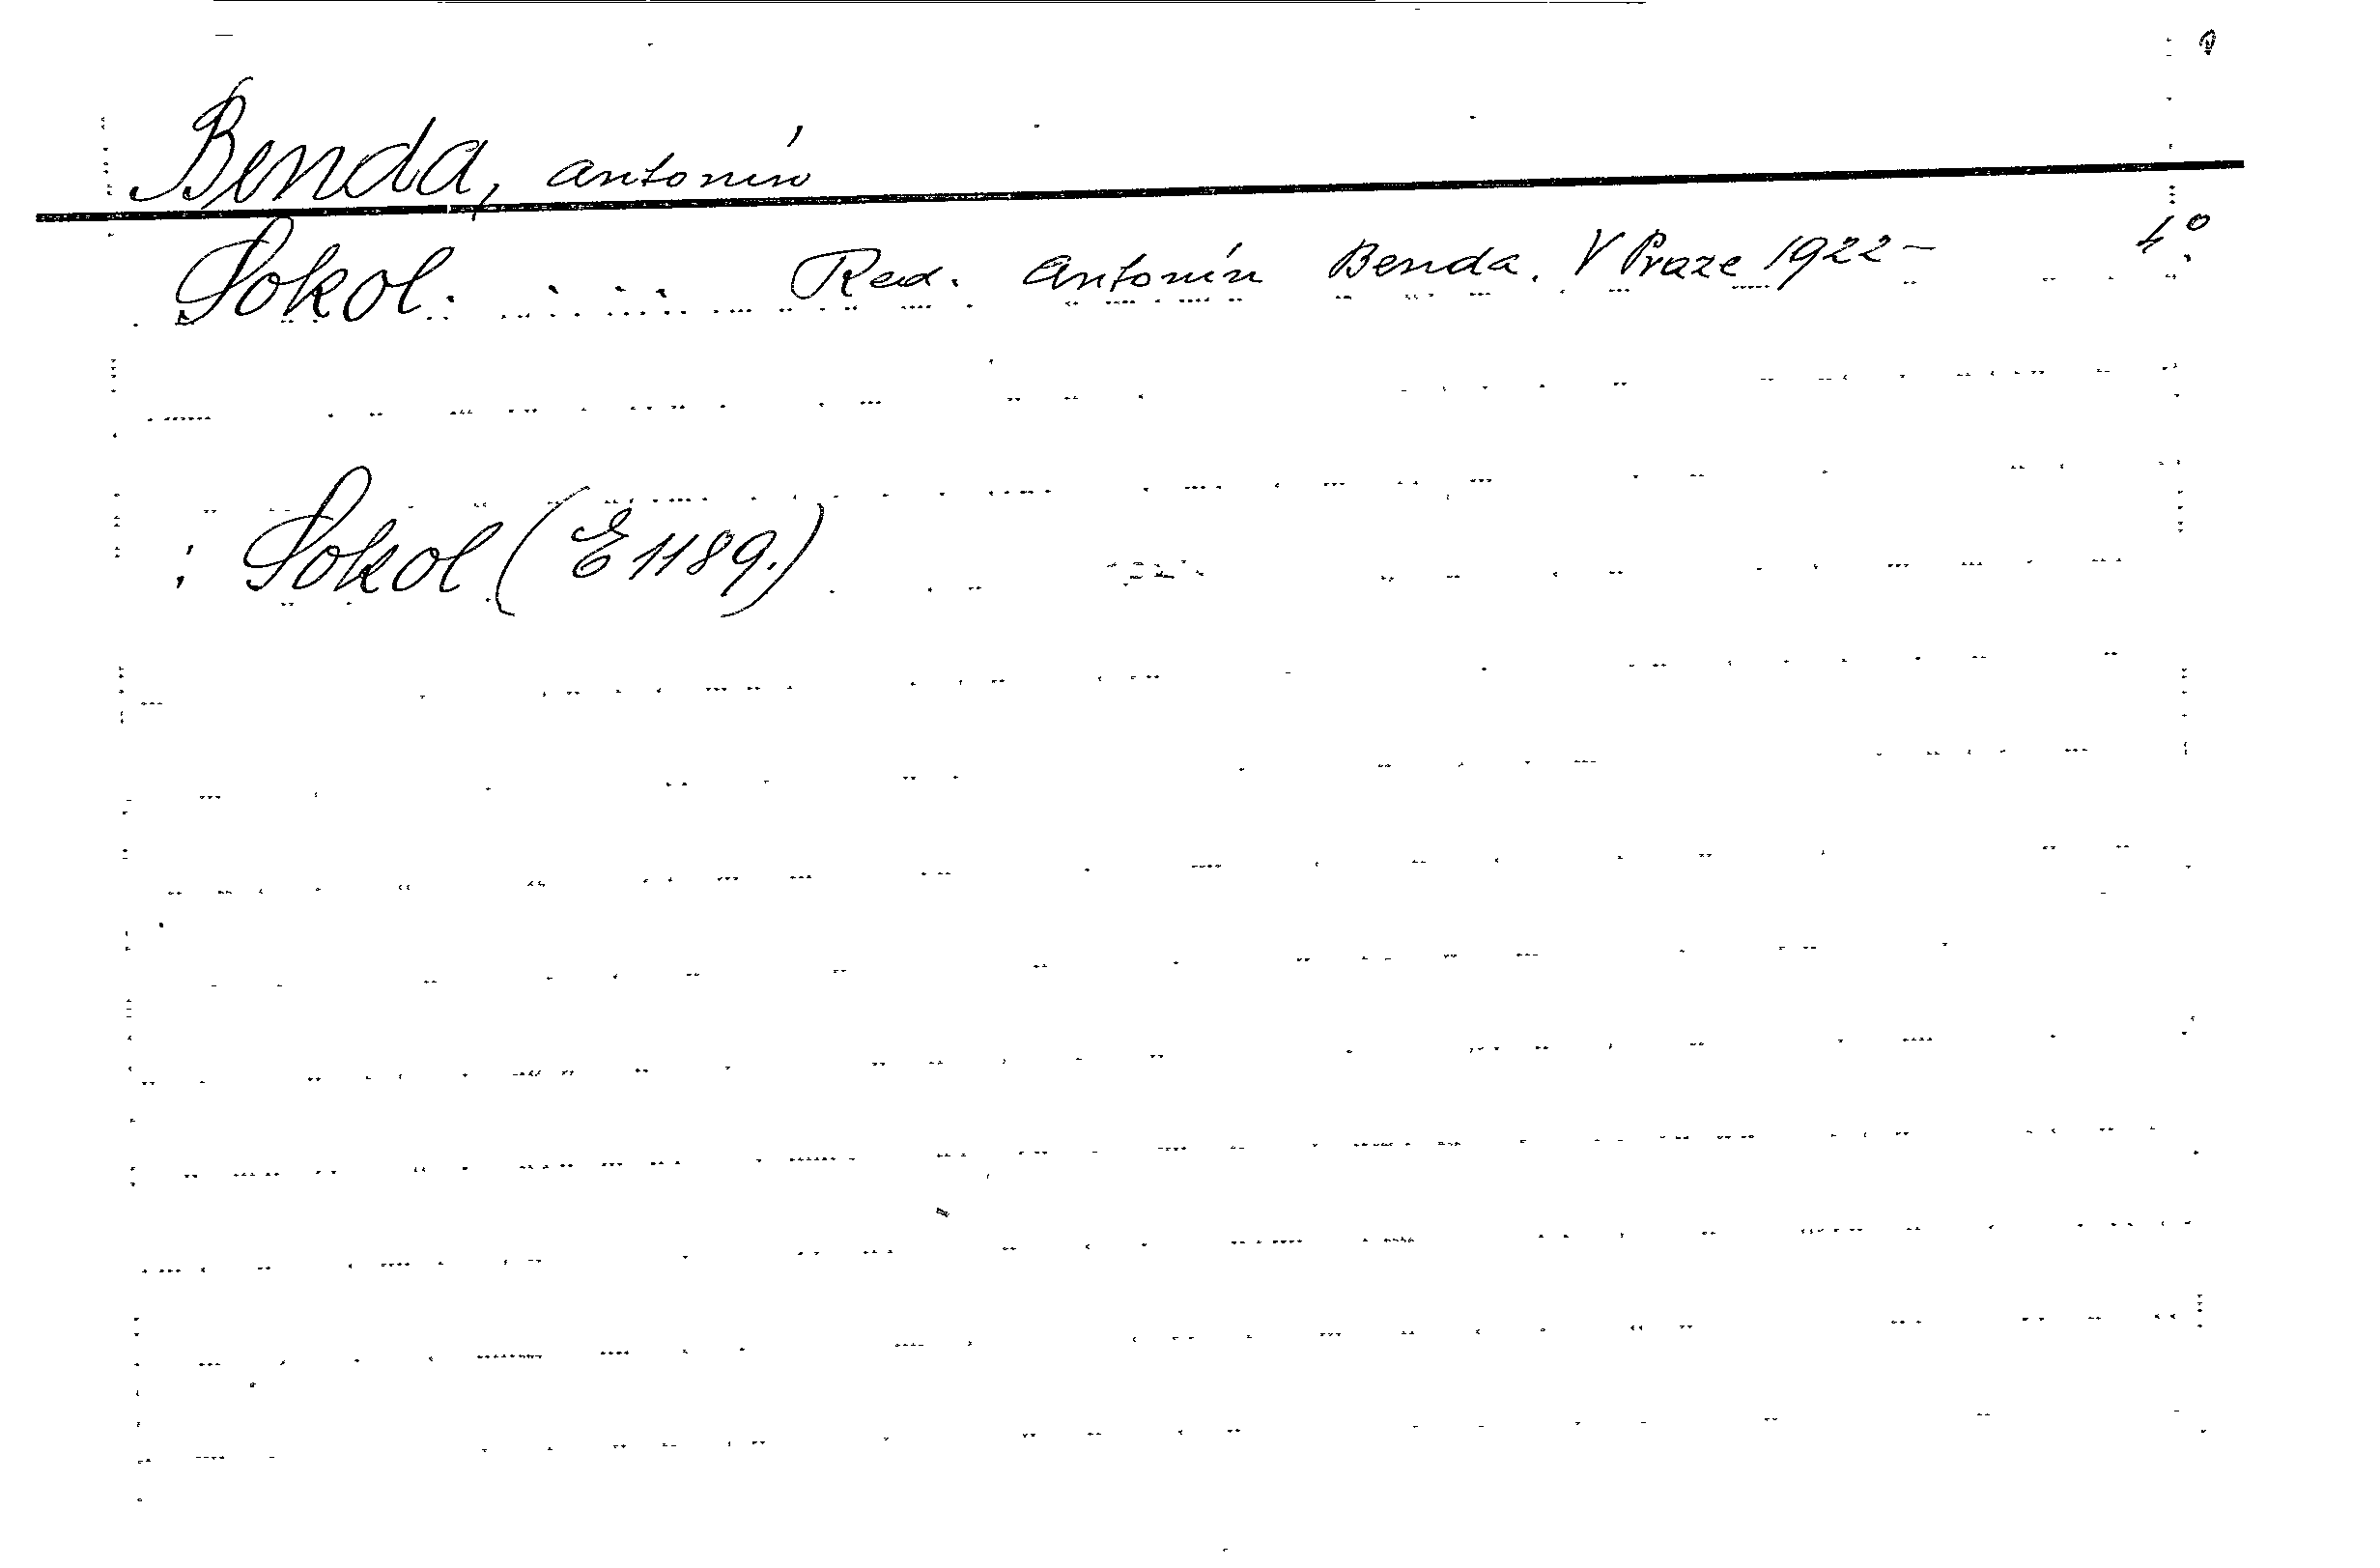 Benda, Antonín
Sokol. . . . . Red. Antonín Benda. V Praze 1922– 4°.
: Sokol (E 1189.)